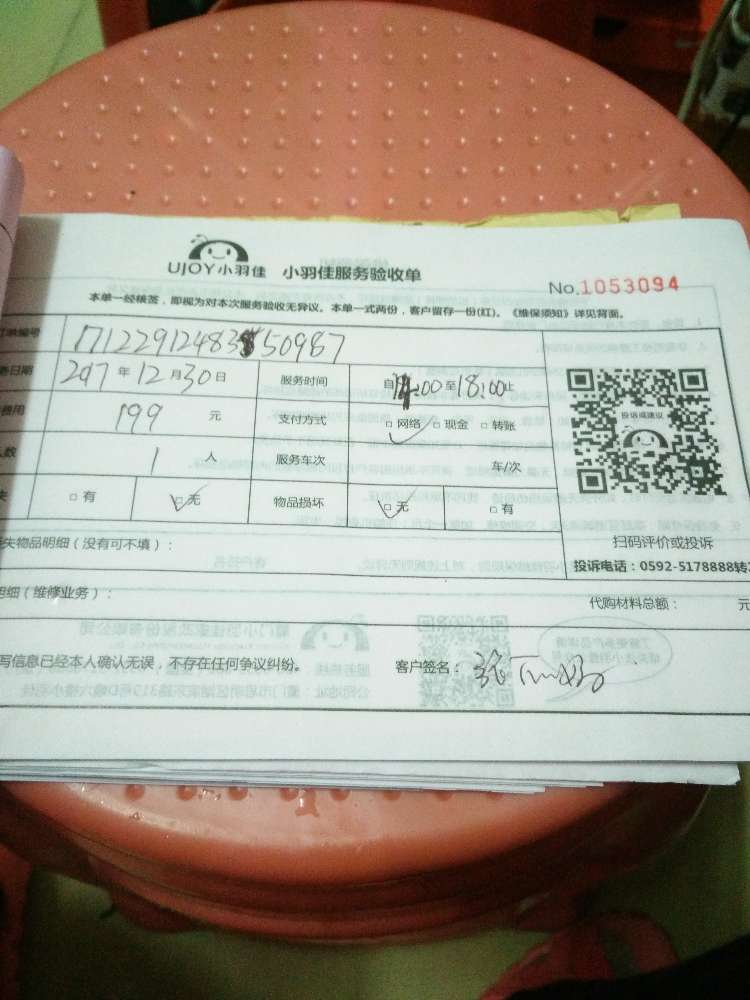 UJOY小羽佳 小羽佳服务验收单
No.1053094
本单一经核签，即视为对本次服务验收无异议。本单一式两份，客户留存一份(红)。《维保须知》详见背面。
单编号 1712291248350987
日期 2017年12月30日 服务时间 自14:00至18:00止
费用 199 元 支付方式 □网络 □现金 □转账
数 1 人 服务车次 车/次
失 □有 □无 物品损坏 □无 □有
投诉或建议
失物品明细（没有可不填）：
扫码评价或投诉
投诉电话：0592-5178888转
明细（维修业务）：
代购材料总额： 元
写信息已经本人确认无误，不存在任何争议纠纷。 客户签名：